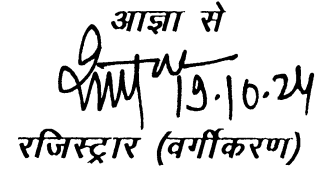 आज्ञा से
19.10.24
रजिस्ट्रार (वर्गीकरण)